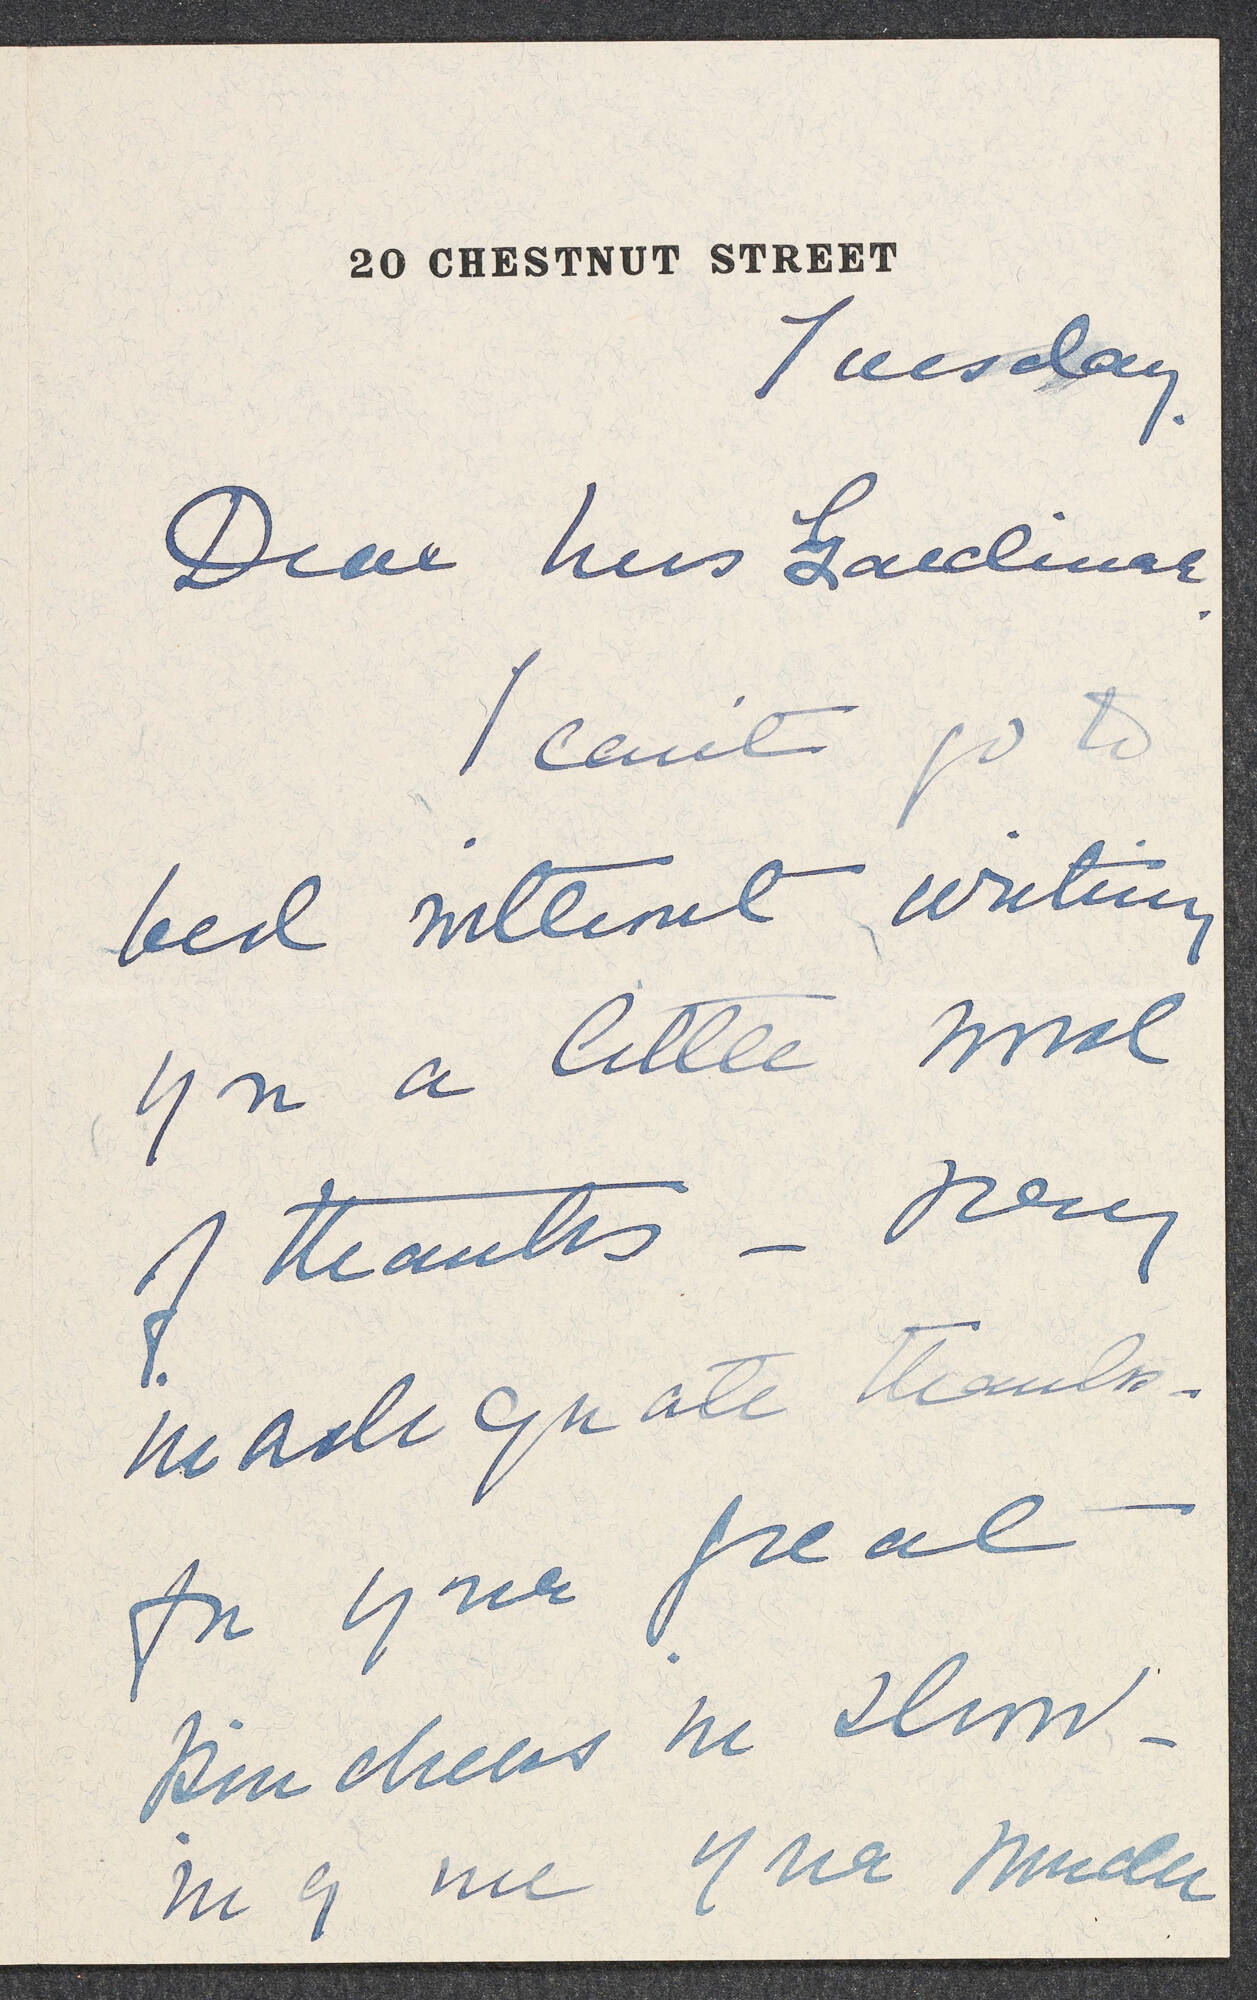 20 CHESTNUT STREET
Tuesday.
Dear Mrs Gardiner.
I can't go to
bed without writing
you a little word
of thanks – very
inadequate thanks –
for your great
kindness in show-
ing me your